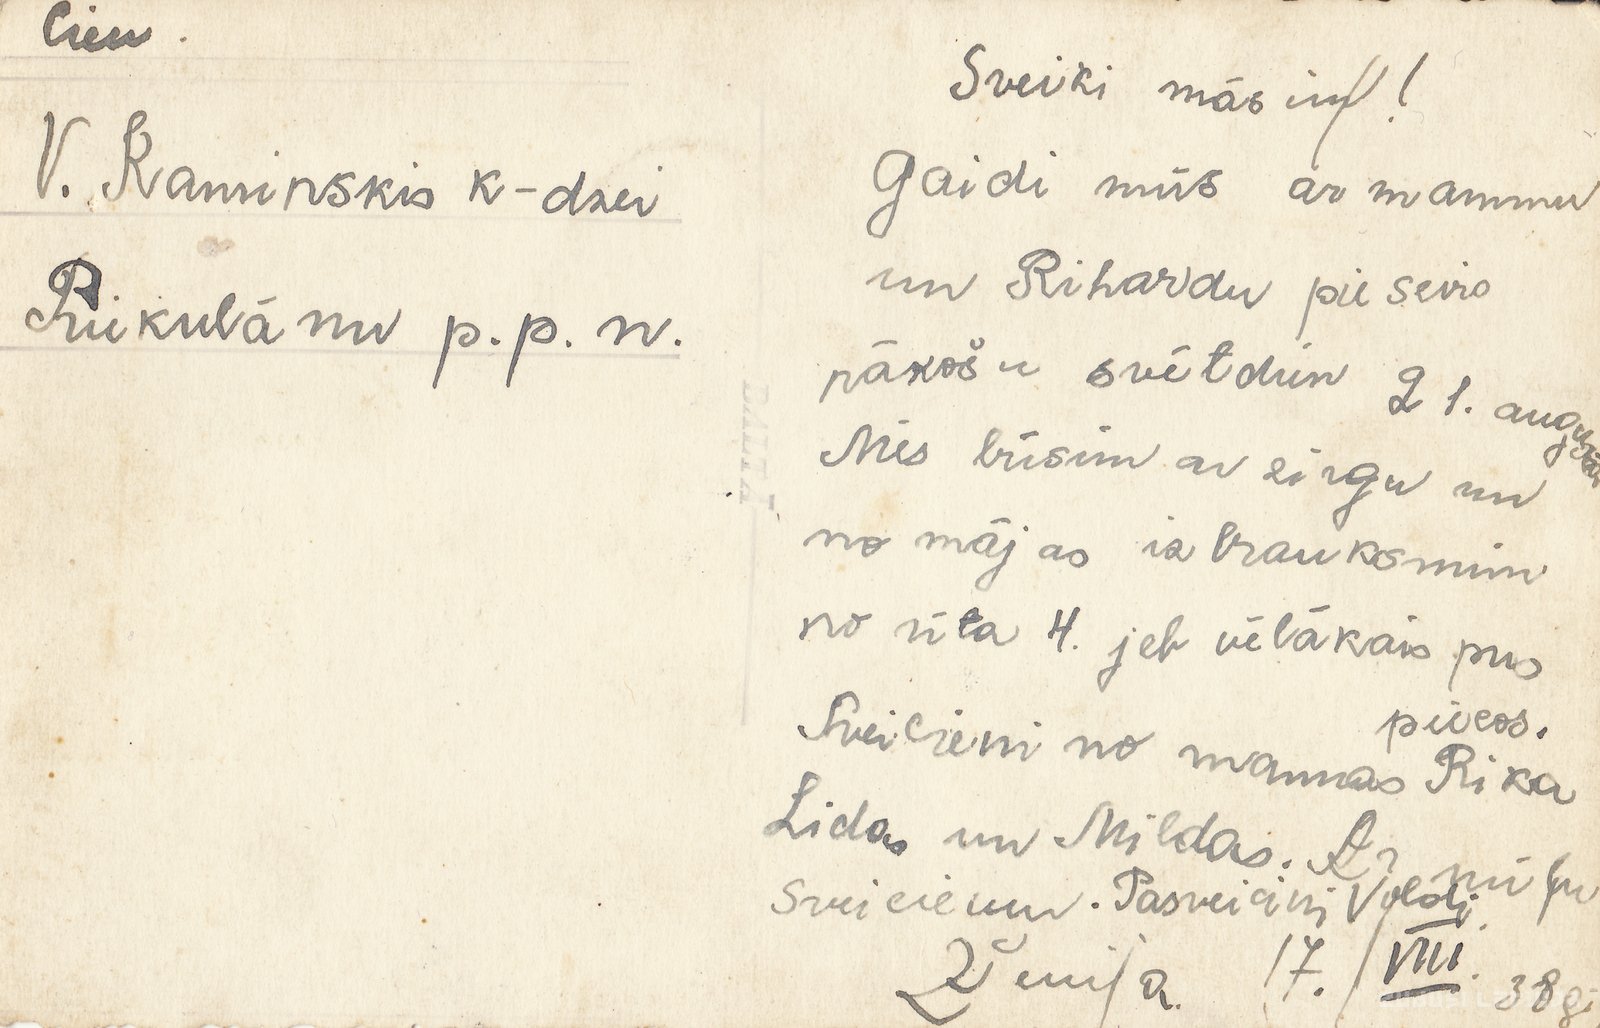 Cien.
V. Kaminskis k-dzei
Riekulānu p.p. n.
BALTA
Sveiki māsiņ!
Gaidi mūs ar mammu
un Rihardu pie sevis
nākošu svētdien 21. augustā
Mēs būsim ar zirgu un
no mājas izbrauksmim
no rīta 4. jeb vēlākais pus
piecos.
Sveicieni no mammas Rika
Lidas un Mildas. Ar mīļu
sveicienu. Pasveicini Voldi.
Ženija. 17./VIII. 38 g.